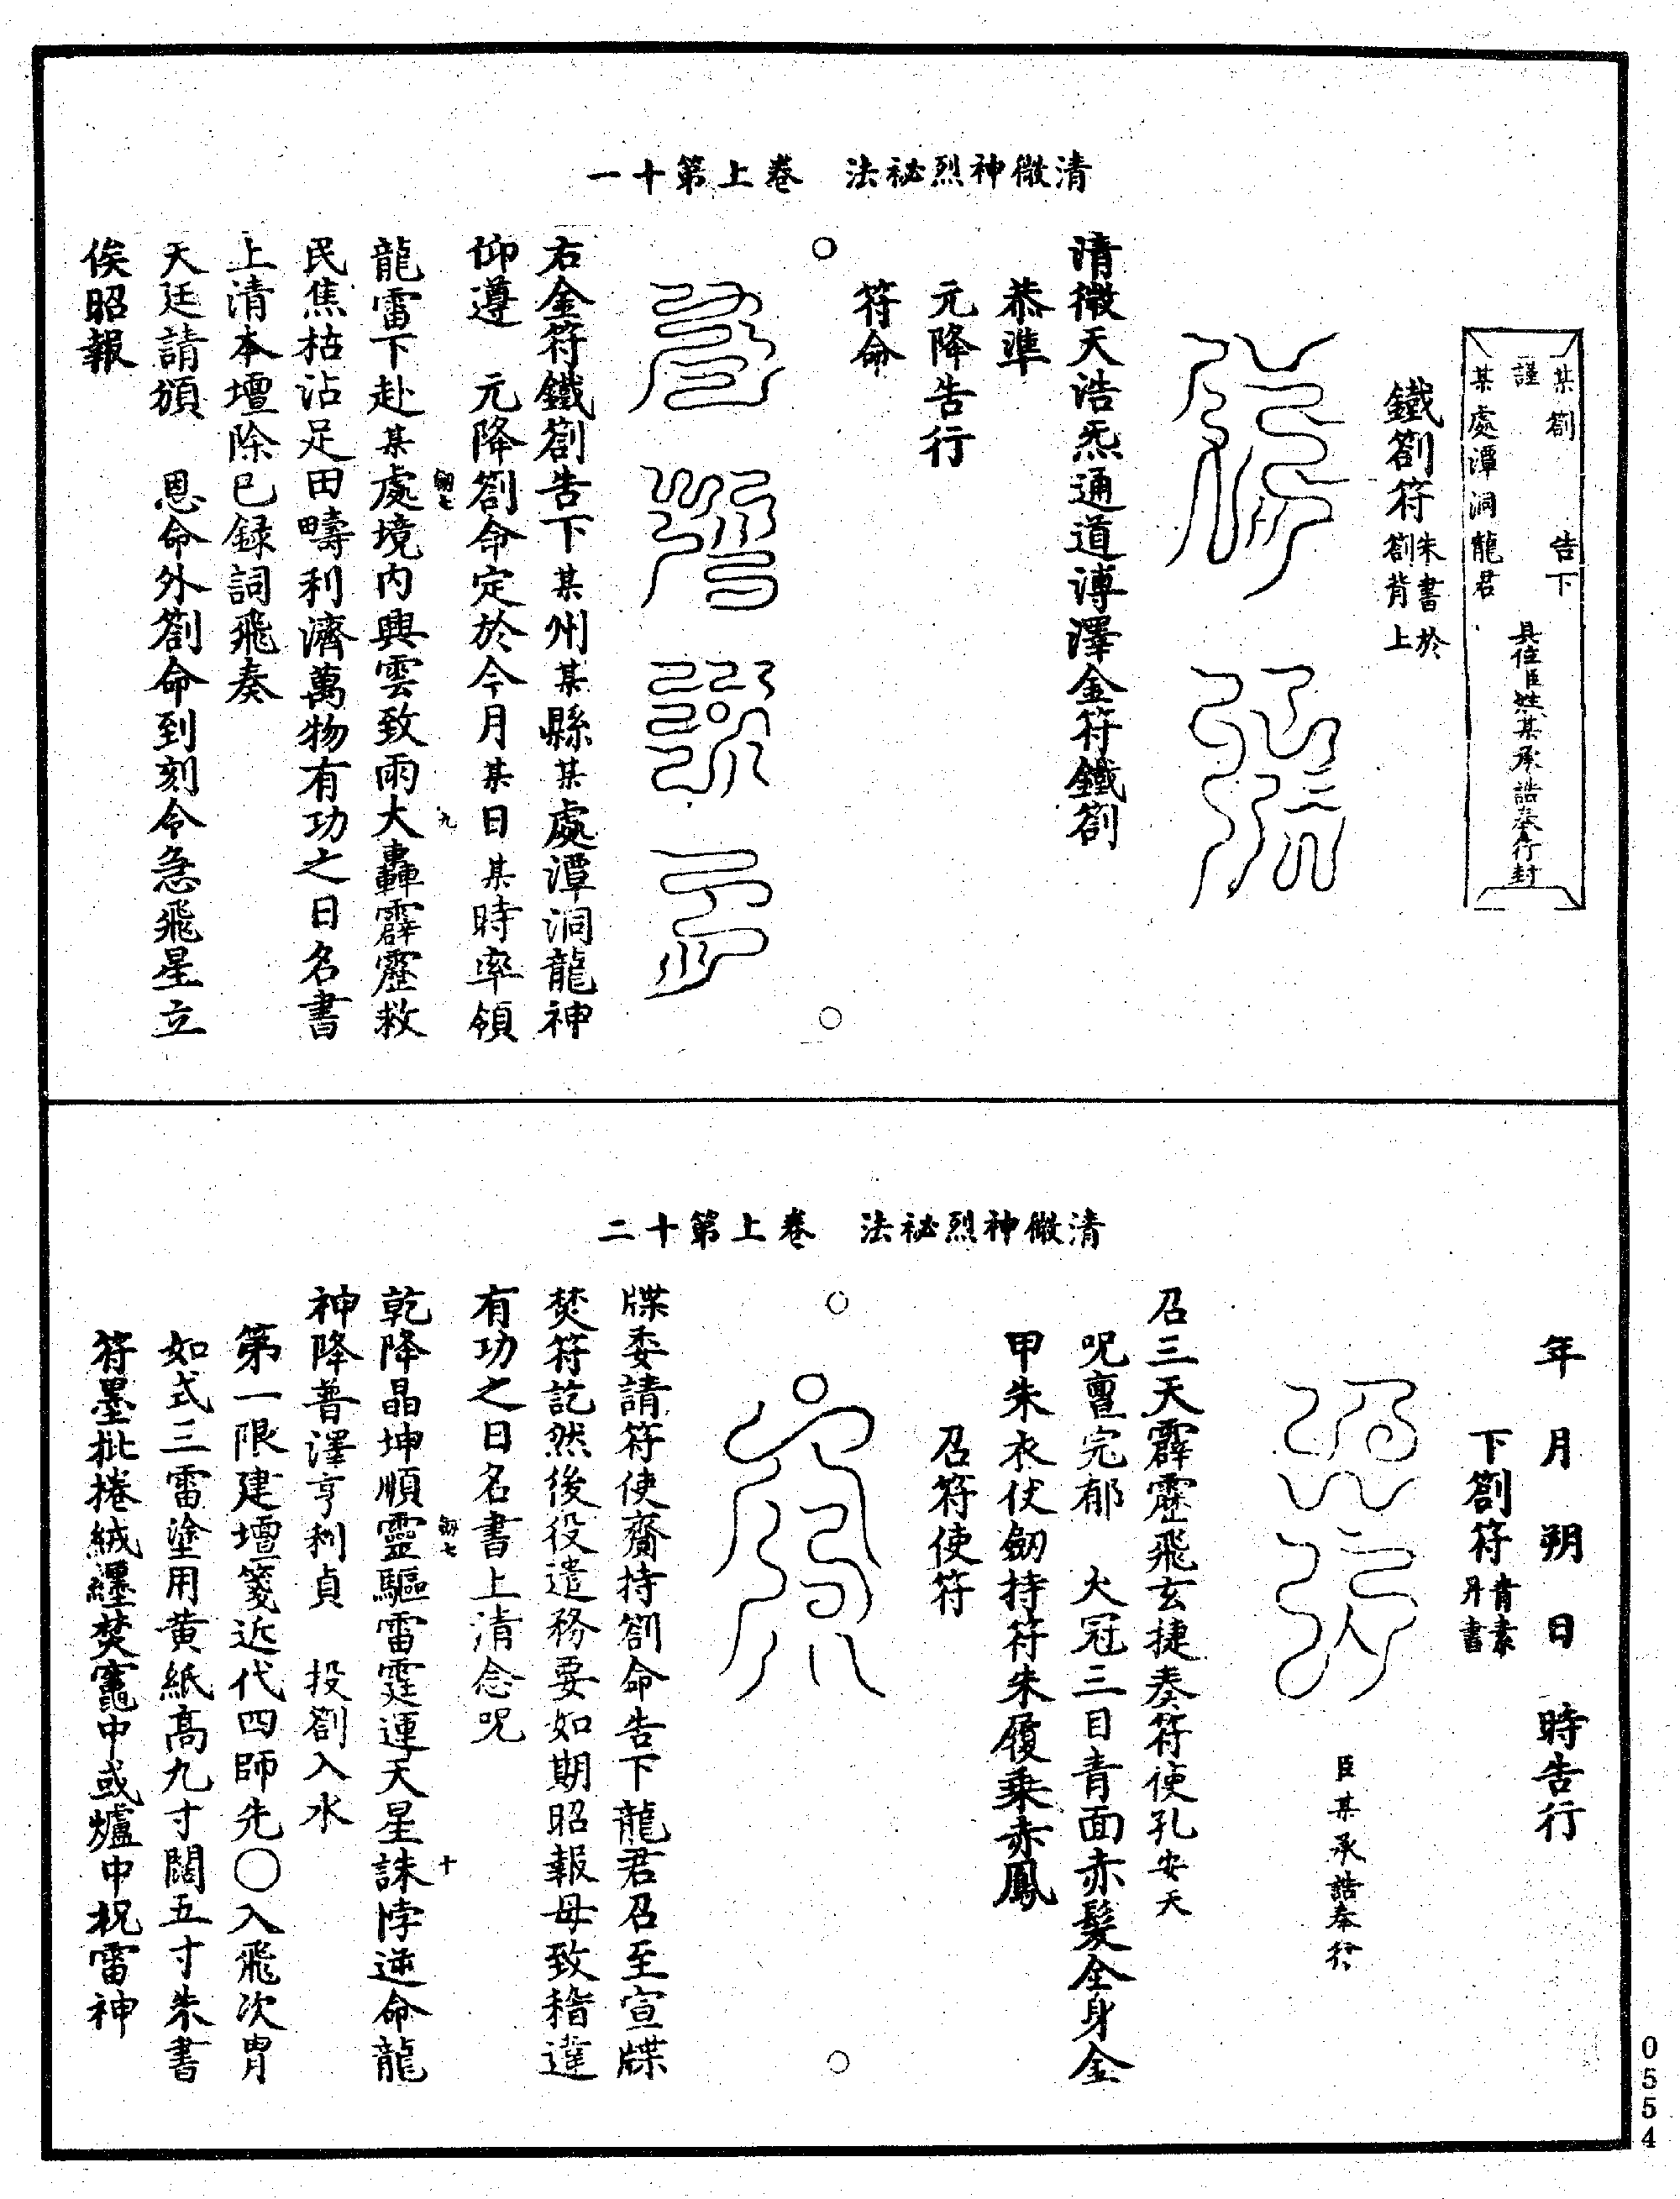 清微神烈祕法　卷上第十一
某劄　告下
謹
具位臣姓某承誥奉行封
某處潭洞龍君
鐵劄符朱書於劄背上
清微天浩炁通道溥澤金符鐵劄
恭準
元降告行
符命
右金符鐵劄告下某州某縣某處潭洞龍神
仰遵　元降劄命定於今月某日某時率領
劒七　九
龍雷下赴某處境內興雲致雨大轟霹靂救
民焦枯沾足田疇利濟萬物有功之日名書
上清本壇除已録詞飛奏
天廷請頒　恩命外劄命到刻令急飛星立
俟昭報
清微神烈祕法　卷上第十二
年　月　朔　日　時告行
下劄符青素丹書
臣某承誥奉行
召三天霹靂飛玄捷奏符使孔安天
呪亶完郁　火冠三目青面赤髮全身金
甲朱衣伏劒持符朱履乘赤鳳
召符使符
牒委請符使齎持劄命告下龍君召至宣牒
焚符訖然後役遣務要如期昭報毋致稽違
有功之日名書上清念呪
劒七　十
乾降晶坤順靈驅雷霆運天星誅悖逆命龍
神降普澤亨利貞　投劄入水
第一限建壇箋近代四師先〇入飛次胃
如式三雷塗用黄紙高九寸闊五寸朱書
符墨批捲絨纏焚竈中或爐中祝雷神
0554